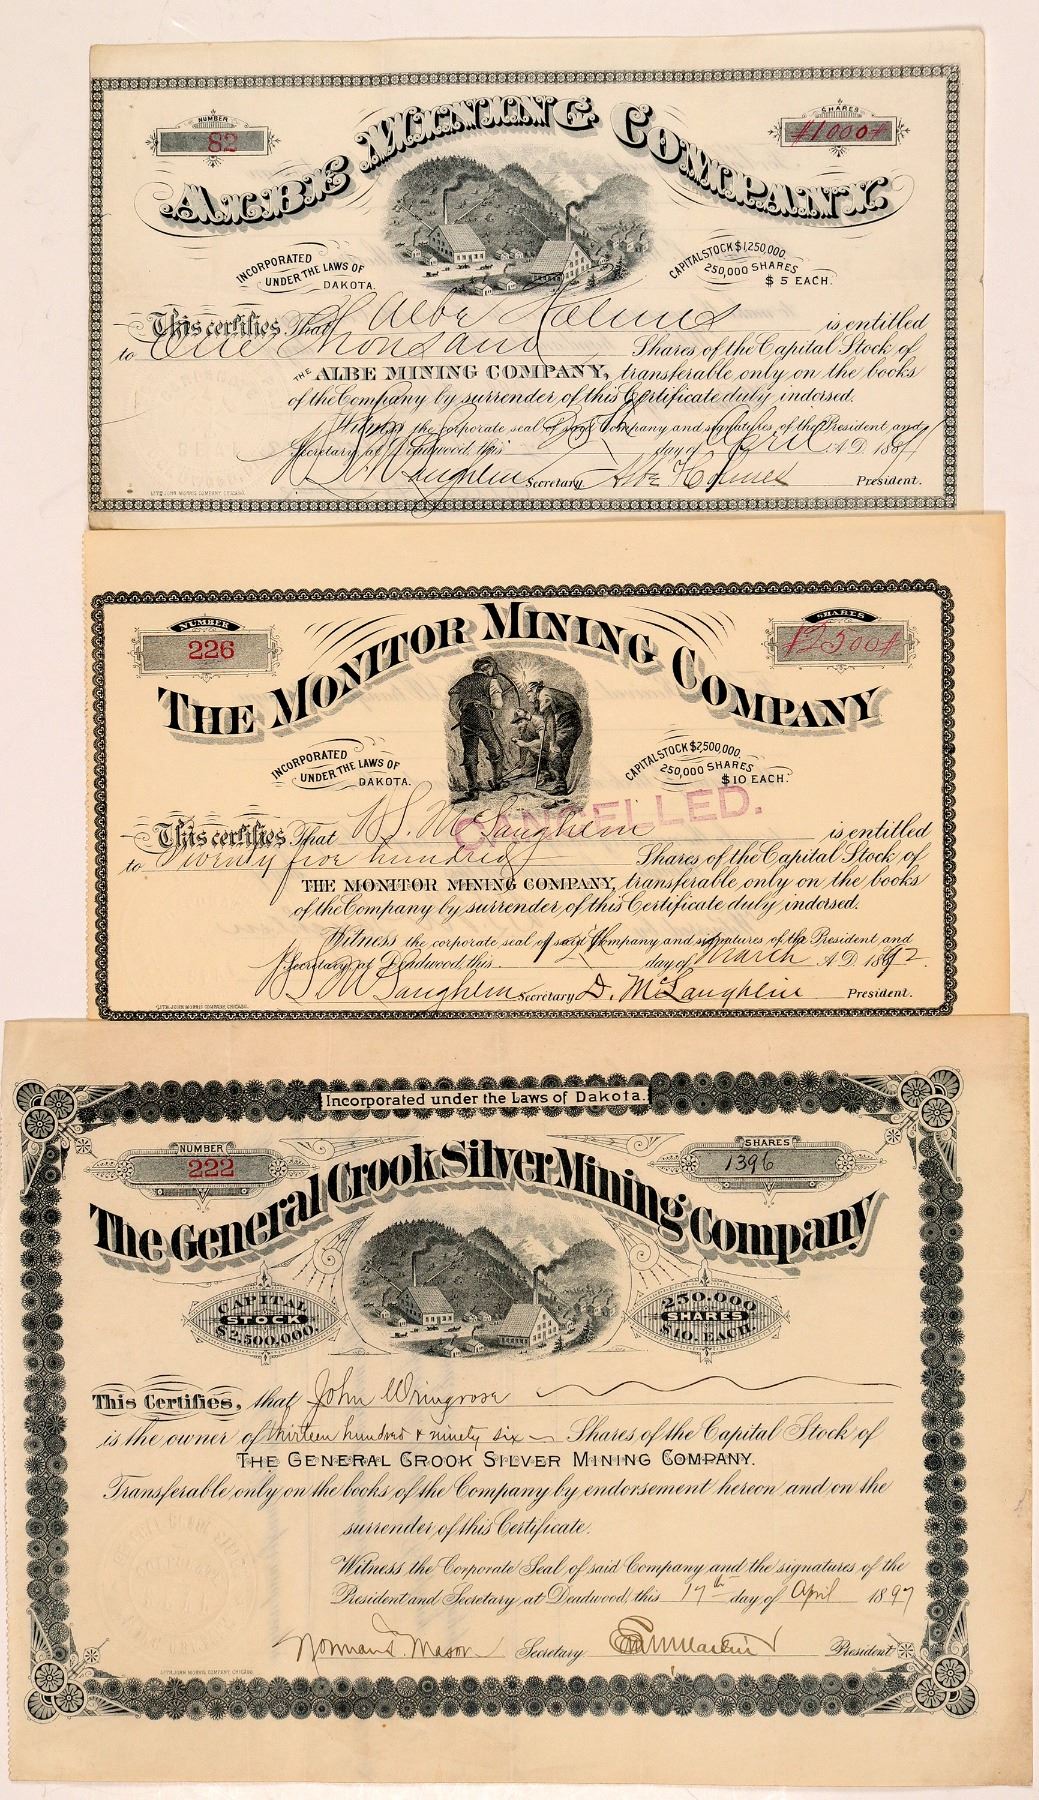 NUMBER
82
SHARES
#1000#
ALBE MINING COMPANY
INCORPORATED
UNDER THE LAWS OF
DAKOTA.
CAPITAL STOCK $1,250,000.
250,000 SHARES
$ 5 EACH.
This certifies That Albe Holmes is entitled
to One Thousand Shares of the Capital Stock of
THE ALBE MINING COMPANY, transferable only on the books
of the Company by surrender of this Certificate duly indorsed.
Witness the corporate seal of said Company and signatures of the President and
Secretary at Deadwood, this day of April A.D. 188
McLaughlin Secretary Albe Holmes President.
LITH. JOHN MORRIS COMPANY, CHICAGO.
NUMBER
226
SHARES
#2500#
THE MONITOR MINING COMPANY
INCORPORATED
UNDER THE LAWS OF
DAKOTA.
CAPITAL STOCK $2,500,000.
250,000 SHARES
$10 EACH.
CANCELLED.
This certifies That McLaughlin is entitled
to Twenty five hundred Shares of the Capital Stock of
THE MONITOR MINING COMPANY, transferable only on the books
of the Company by surrender of this Certificate duly indorsed.
Witness the corporate seal of said Company and signatures of the President and
Secretary at Deadwood, this day of March A.D. 1892.
McLaughlin Secretary D. McLaughlin President.
LITH. JOHN MORRIS COMPANY, CHICAGO.
Incorporated under the Laws of Dakota.
NUMBER
222
SHARES
1396
The General Crook Silver Mining Company
CAPITAL
STOCK
$2,500,000.
250.000
SHARES
$10. EACH.
This Certifies, that John Wringrose
is the owner of thirteen hundred & ninety six Shares of the Capital Stock of
THE GENERAL CROOK SILVER MINING COMPANY.
Transferable only on the books of the Company by endorsement hereon and on the
surrender of this Certificate.
Witness the Corporate Seal of said Company and the signatures of the
President and Secretary at Deadwood, this 17th day of April 1897
Norman T. Mason Secretary President
LITH. JOHN MORRIS COMPANY, CHICAGO.